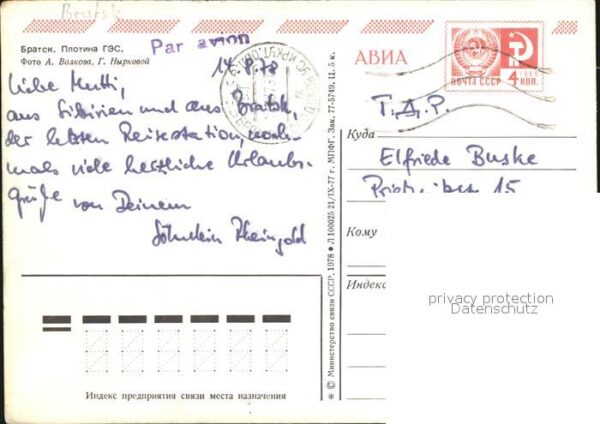 Bratsk
Братск. Плотина ГЭС.
Фото А. Волкова, Г. Нырковой
Par avion
14.8.78
Liebe Mutti,
aus Sibirien und aus Bratsk,
der letzten Reisestation, noch-
mals viele herzliche Urlaubs-
grüße von Deinem
Söhnlein Rheingold
© Министерство связи СССР, 1978 • Л 100025 21/IX-77 г. МПФГ. Зак. 77-5749. Ц. 5 к.
АВИА
1966
ПОЧТА СССР 4 КОП
Т.Д.Р.
Куда
Elfriede Buske
15
Кому
Индекс
privacy protection
Datenschutz
Индекс предприятия связи места назначения